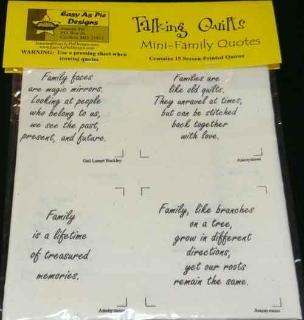 Easy As Pie
Designs
WARNING: Use a pressing sheet when
ironing quotes
Talking Quilts
Mini-Family Quotes
Contains 15 Screen Printed Quotes
Family faces
are magic mirrors.
Looking at people
who belong to us,
we see the past,
present, and future.
Gail Lumet Buckley
Families are
like old quilts.
They unravel at times,
but can be stitched
back together
with love.
Anonymous
Family
is a lifetime
of treasured
memories.
Anonymous
Family, like branches
on a tree,
grow in different
directions,
yet our roots
remain the same.
Anonymous